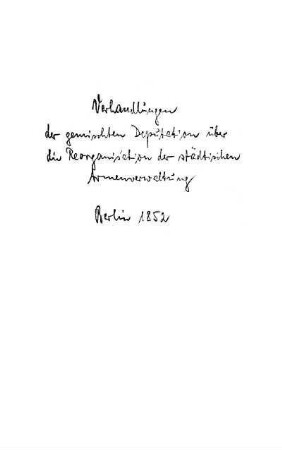 Verhandlungen
der gemischten Deputation über
die Reorganisation der städtischen
Armenverwaltung
Berlin 1852